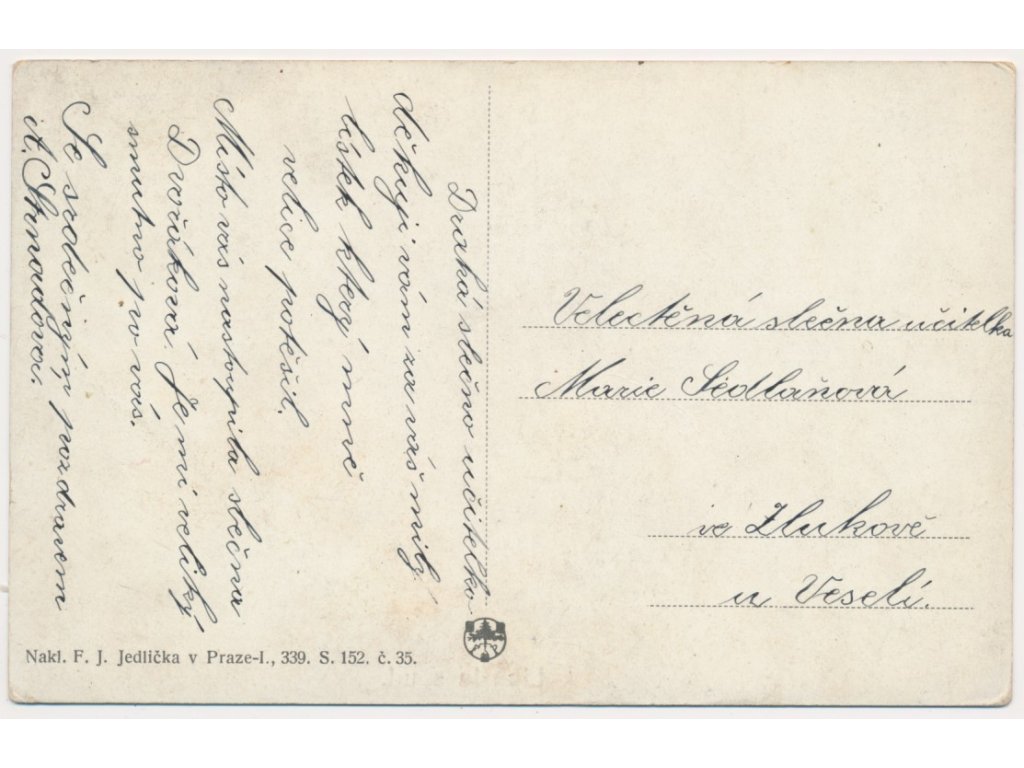 Drahá slečno učitelko
děkuji vám za váš milý
lístek který mně
velice potěšil.
Místo vás nastoupila slečna
Dvořáková. Je mi veliký
smutno po vás.
Se srdečným pozdravem
A. Strnadova.
Velectěná slečna učitelka
Marie Sedlaňová
ve Zlukově
u Veselí.
Nakl. F. J. Jedlička v Praze-I., 339. S. 152. č. 35.